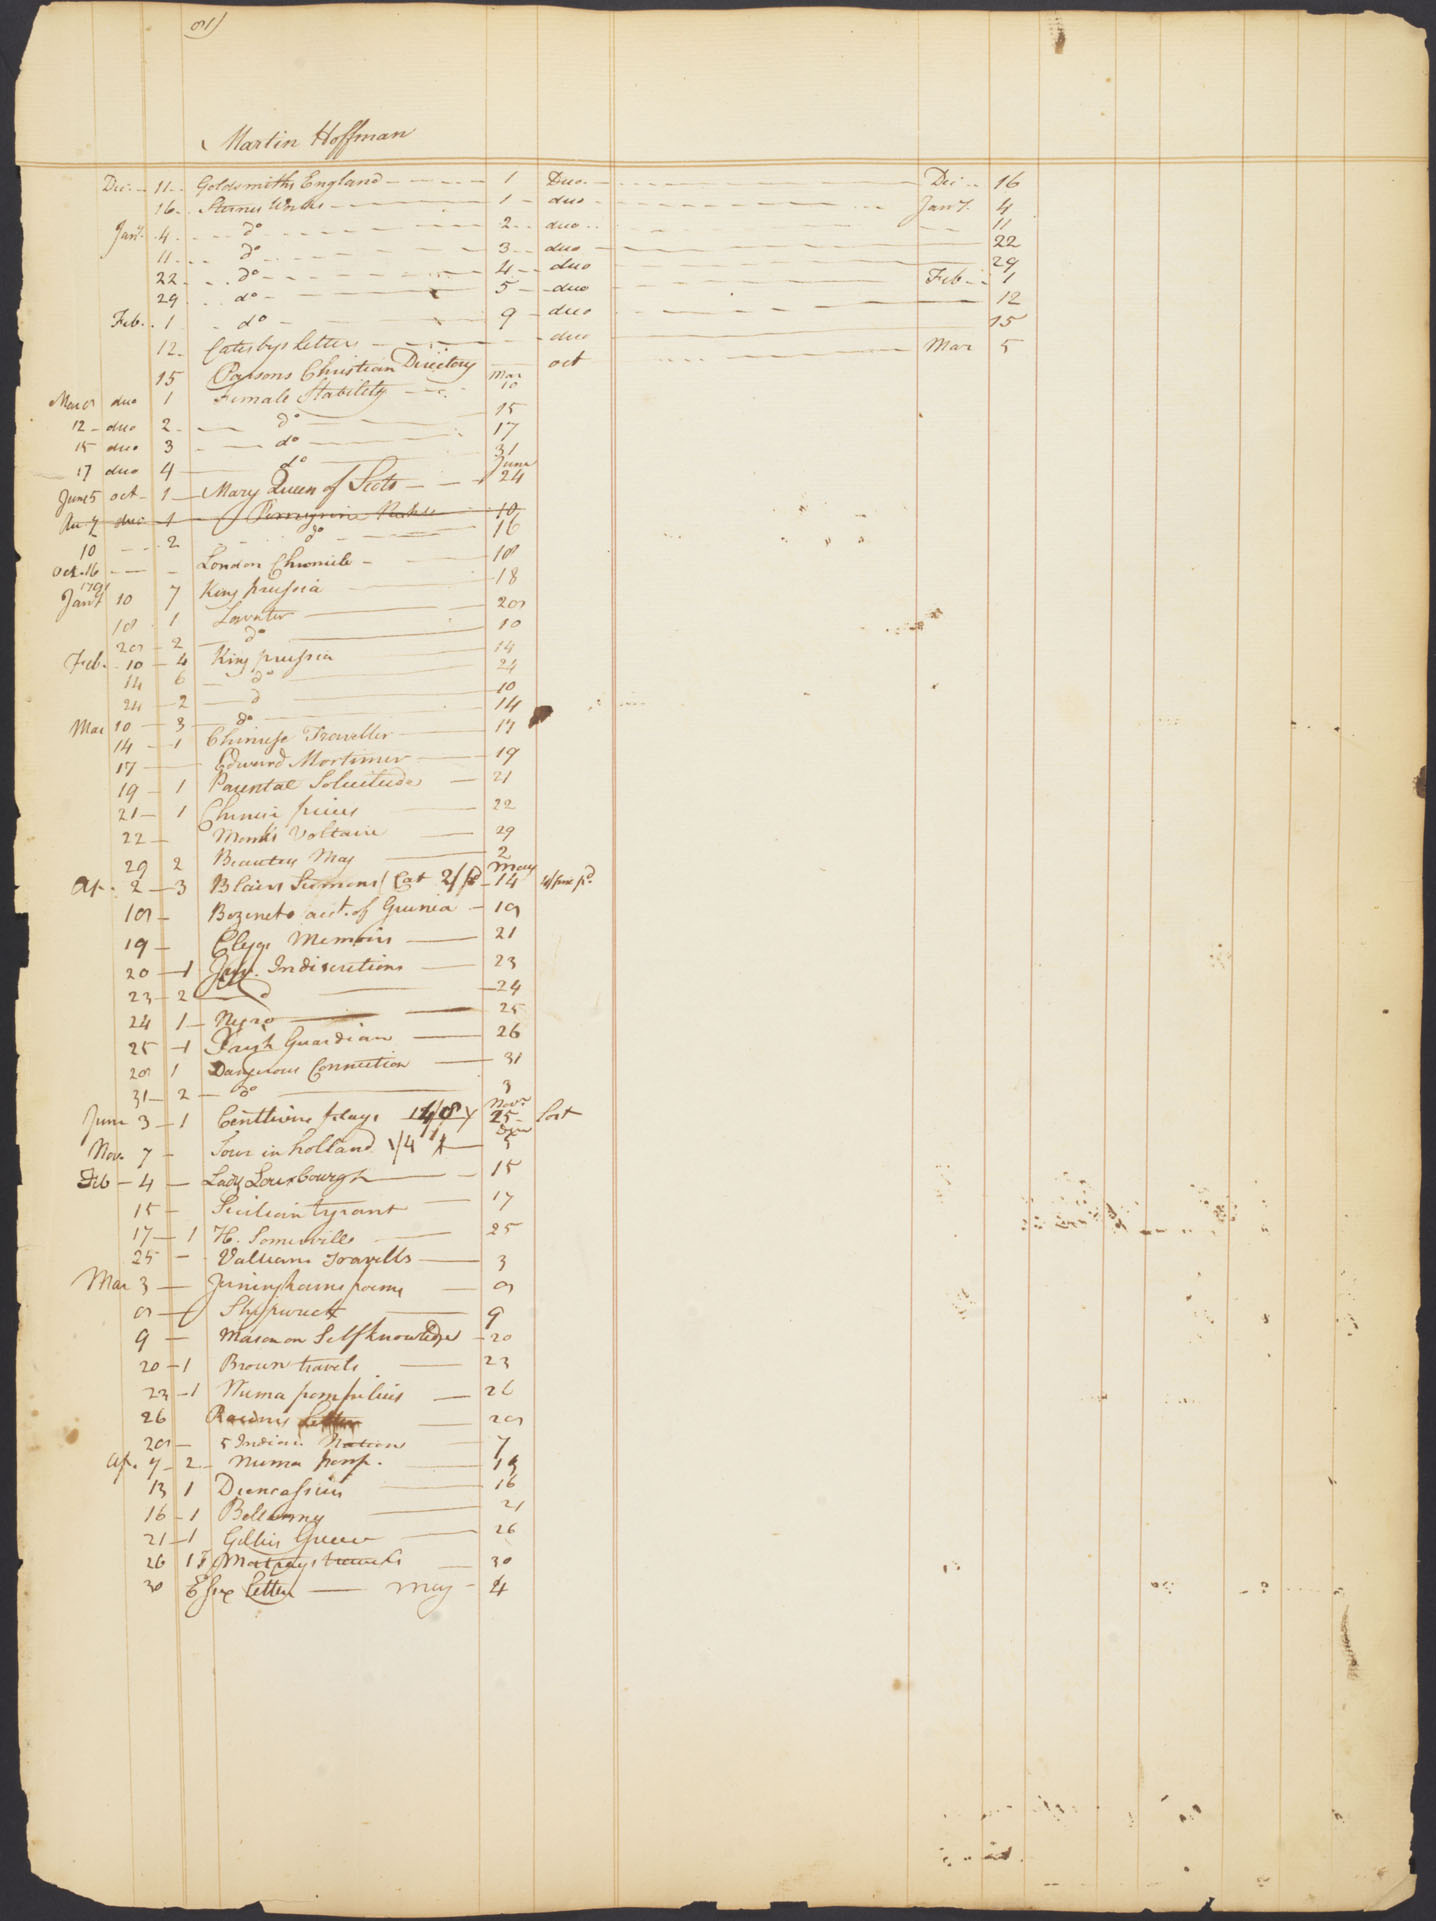 Martin Hoffman
Dec. 11 Goldsmiths England 1 Duo. Dec 16
16 Sternes Works 1 duo Jany. 4
Jany. 4 do 2 duo 11
11 do 3 duo 22
22 do 4 duo 29
29 do 5 duo Feb. 1
Feb. 1 do 9 duo 12
12 Catesbys Letters duo 15
15 Parsons Christian Directory oct Mar 5
duo 1 Female Stability Mar 10
12 duo 2 do 15
15 duo 3 do 17
17 duo 4 do 31
June 5 oct 1 Mary Queen of Scots June 24
duo 1 Peregrine Pickle 10
10 2 do 16
Oct. 16 London Chronicle 18
Jany 10 7 King prussia 18
18 1 Lavater 28
28 2 do 10
Feb. 10 4 King prussia 14
14 6 do 24
24 2 d 10
Mar 10 3 do 14
14 1 Chinese Traveller 17
17 Edward Mortimer 19
19 1 Parental Solicitude 21
21 1 Chinese pieces 22
22 Monks Voltaire 29
29 2 2
Ap. 2 3 Blairs Sermons May 14
18 acct. of Guinea 19
19 Memoirs 21
20 1 Juv. Indiscretions 23
23 2 d 24
24 1 Negro 25
25 1 Guardian 26
28 1 Dangerous Connection 31
31 2 do 3
June 3 1 Centlivre plays Novr 25 Lost
Nov 7 Tour in holland 1/4 5
Feb 4 Lady Luxbourgh 15
15 Sicilian tyrant 17
17 1 H. Somerville 25
25 Valliant Travells 3
Mar 3 Jerninghams poems 8
8 Shipwreck 9
9 Mason on Selfknowledge 20
20 1 Brown travels 23
23 1 Numa pompilius 26
26 28
28 5 Indian Nations 7
Ap. 7 2 Numa pomp. 13
13 1 16
16 1 Bellamy 21
21 1 Gillies Greece 26
26 1 travels 30
30 Essex Letters May 4